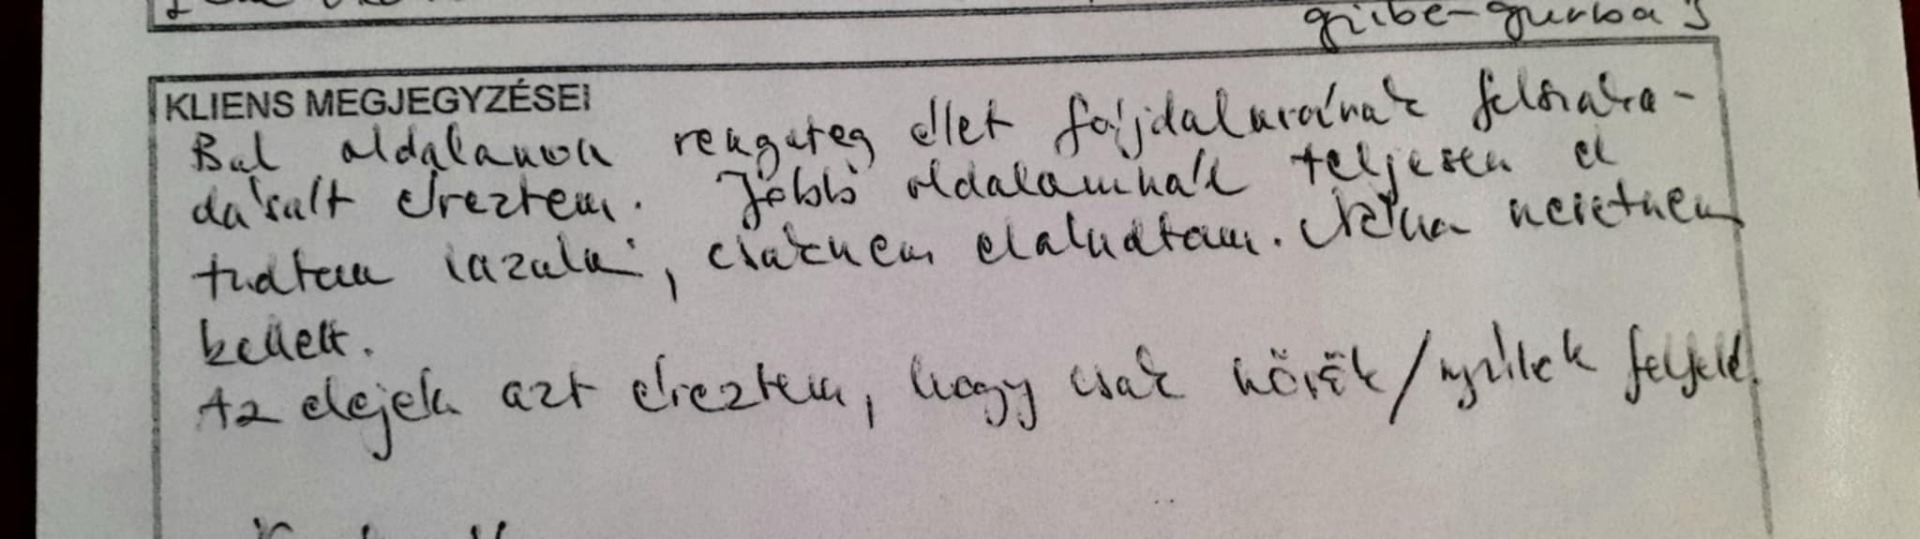 girbe-gurba
KLIENS MEGJEGYZÉSEI
Bal oldalamon rengeteg élet fájdalmának felszaka-
dását éreztem. Jobb oldalamnál teljesen el
tudtam lazulni, csaknem elaludtam. Néha nevetnem
kellett.
Az elején azt éreztem, hogy csak növök/nyúlok felfelé.